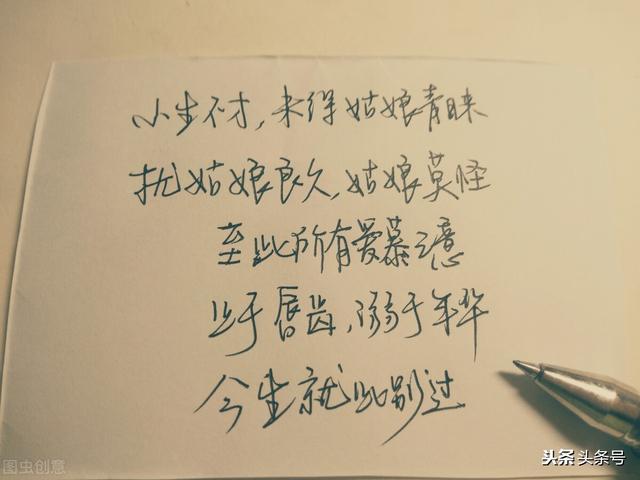 小生不才，未得姑娘青睐
扰姑娘良久，姑娘莫怪
至此所有爱慕之意
止于唇齿，溺于年华
今生就此别过
图虫创意
头条 头条号